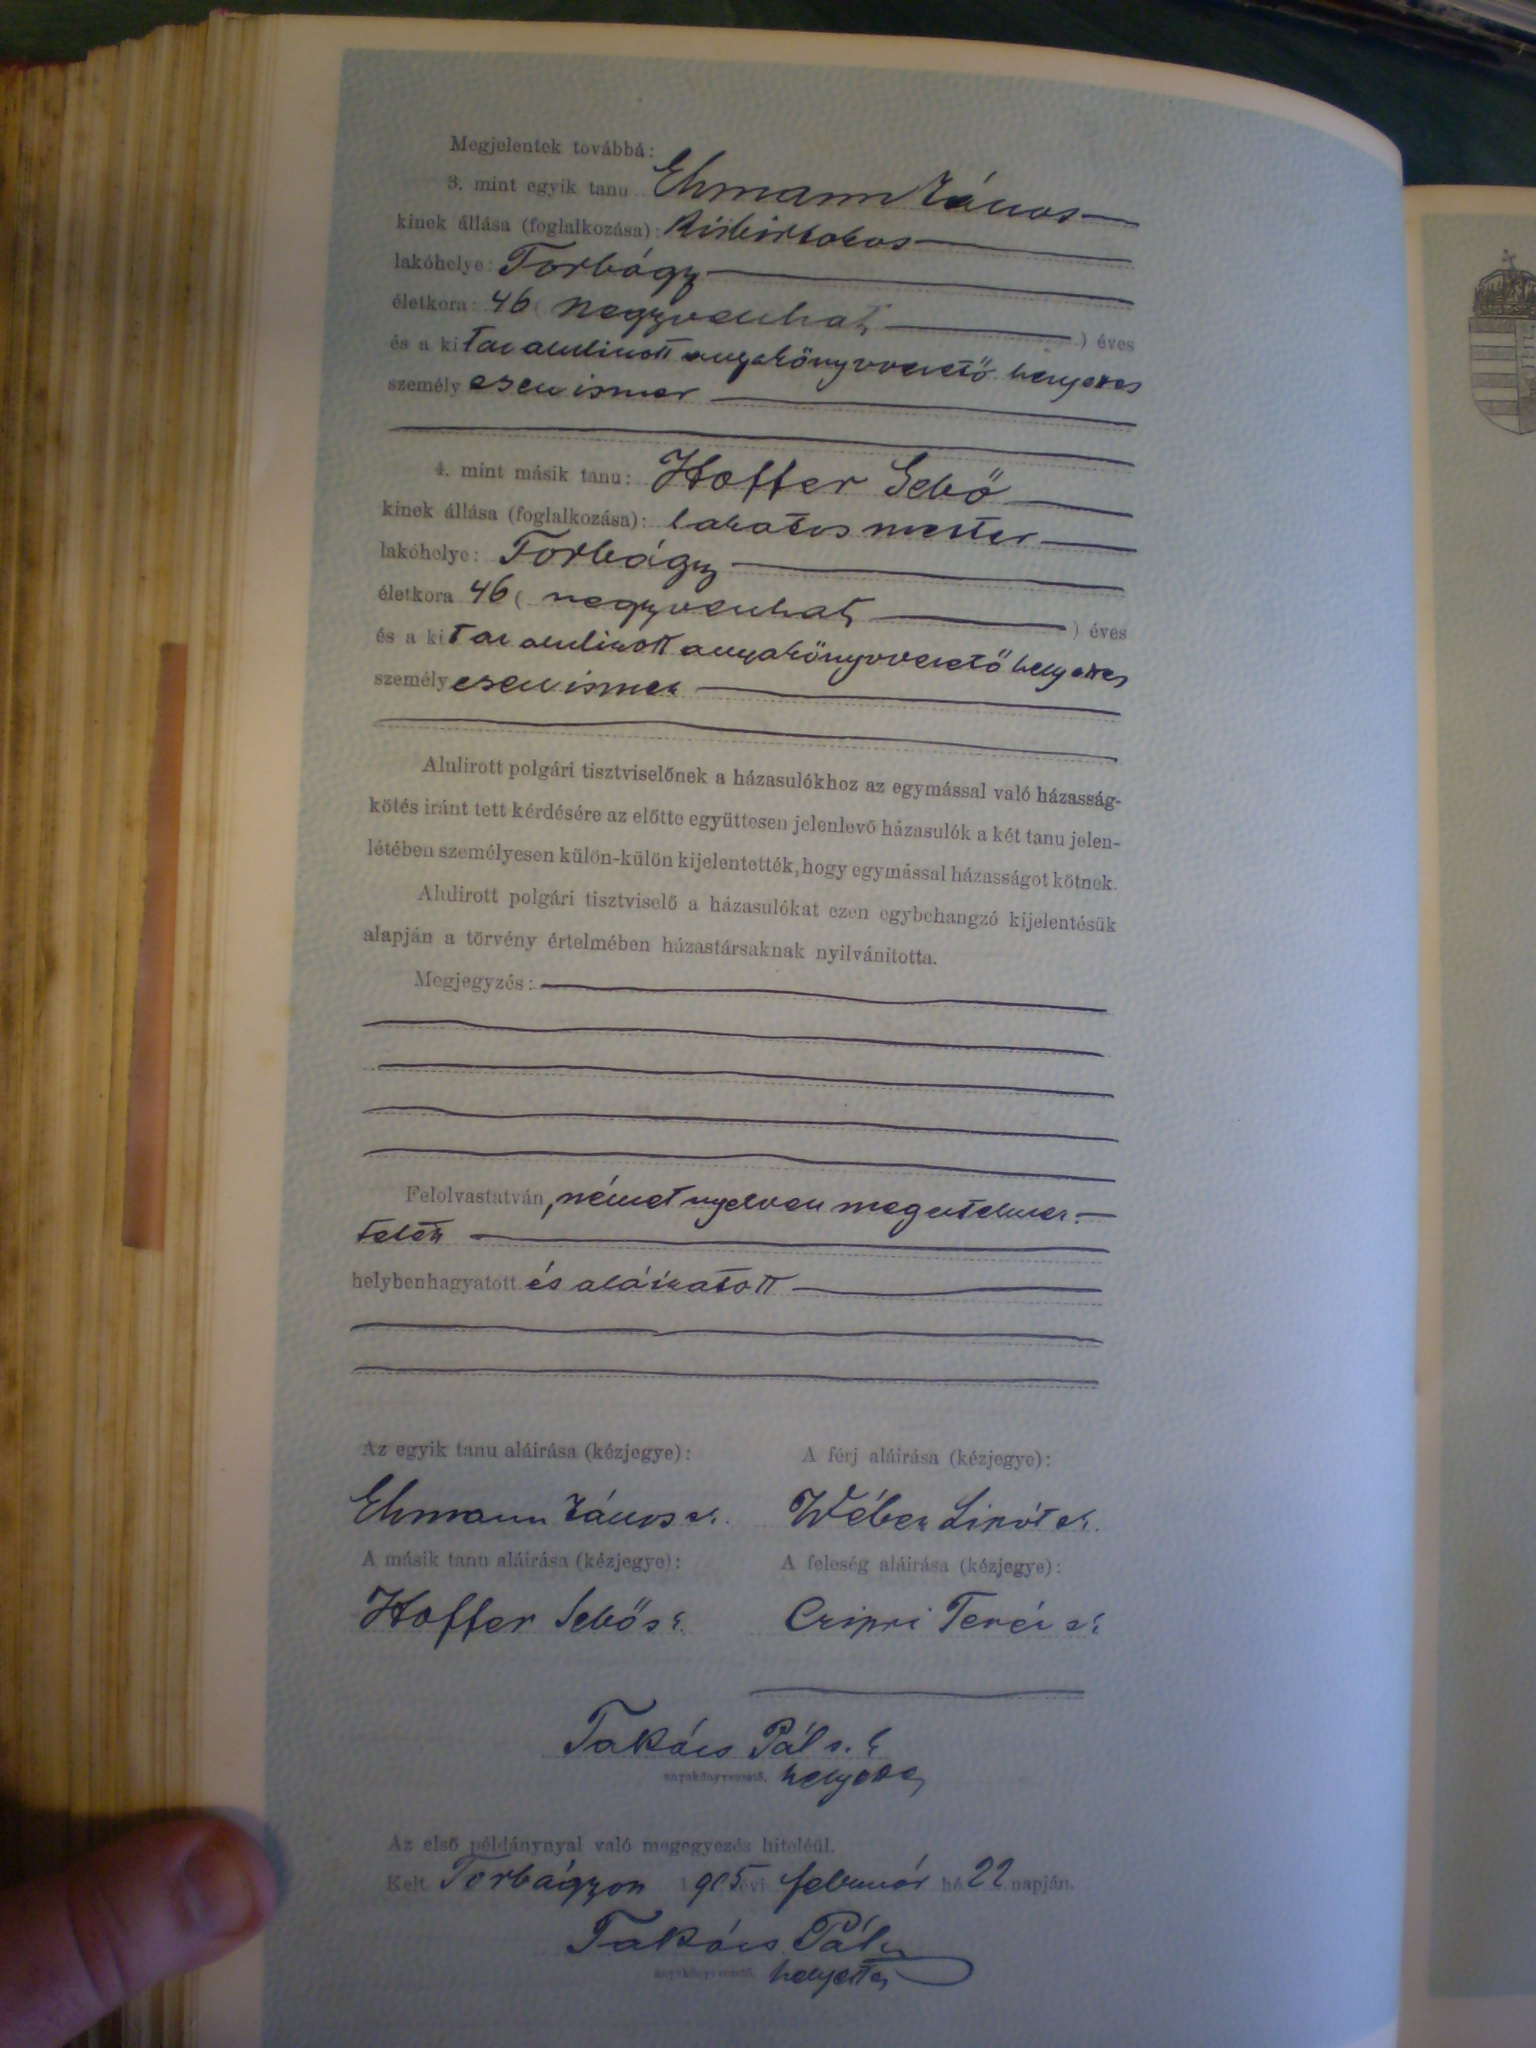 Megjelentek továbbá:
3. mint egyik tanu Ehmann János
kinek állása (foglalkozása): Kisbirtokos
lakóhelye: Torbágy
életkora: 46 ( negyvenhat ) éves
és a kit az alulirott anyakönyvvezető helyettes
személyesen ismer
4. mint másik tanu: Hoffer Sebő
kinek állása (foglalkozása): lakatos mester
lakóhelye: Torbágy
életkora 46 ( negyvenhat ) éves
és a kit az alulirott anyakönyvvezető helyettes
személyesen ismer
Alulirott polgári tisztviselőnek a házasulókhoz az egymással való házasság-
kötés iránt tett kérdésére az előtte együttesen jelenlevő házasulók a két tanu jelen-
létében személyesen külön-külön kijelentették, hogy egymással házasságot kötnek.
Alulirott polgári tisztviselő a házasulókat ezen egybehangzó kijelentésük
alapján a törvény értelmében házastársaknak nyilvánitotta.
Megjegyzés:
Felolvastatván, német nyelven megértelmez-
tetett
helybenhagyatott és aláiratott
Az egyik tanu aláirása (kézjegye): A férj aláirása (kézjegye):
Ehmann János sk. Wéber Lipót sk.
A másik tanu aláirása (kézjegye): A feleség aláirása (kézjegye):
Hoffer Sebő sk. Czipri Teréz sk.
Takács Pál s. k.
anyakönyvvezető. helyettes
Az első példánynyal való megegyezés hiteléül.
Kelt Torbágyon 1905 évi február hó 22 napján.
Takács Pál
anyakönyvvezető. helyettes